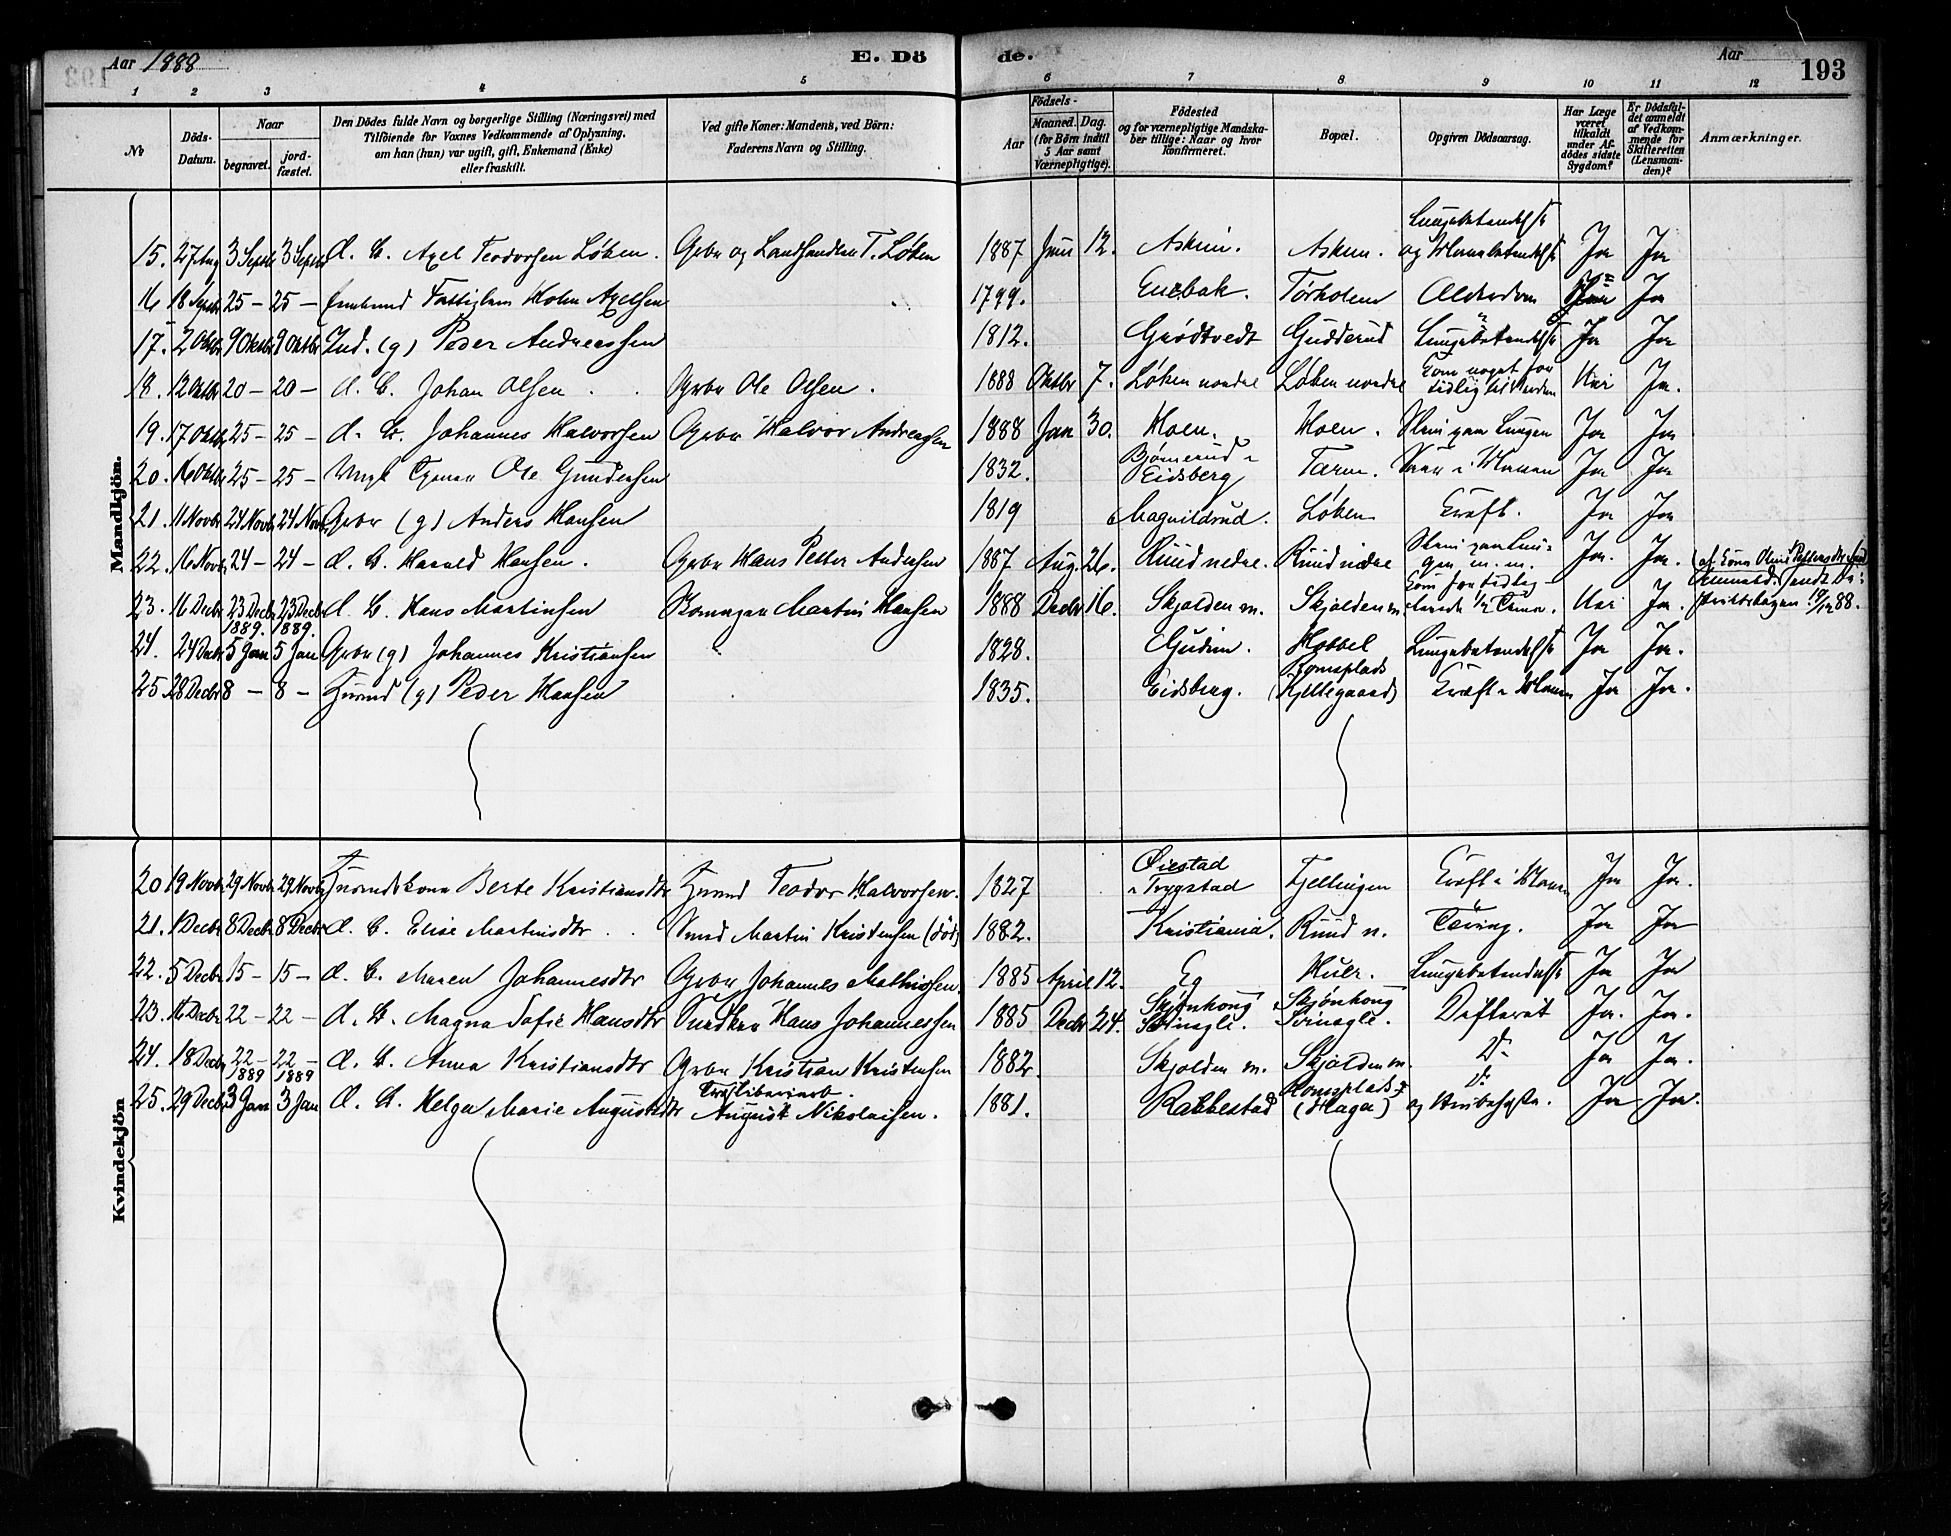 Aar 1888 E. Dö de. Aar 193
1 2 3 4 5 6 7 8 9 10 11 12
No
Döds-Datum.
Naar
begravet.
jord-fæstet.
Den Dödes fulde Navn og borgerlige Stilling (Næringsvei) med
Tilföiende for Voxnes Vedkommende af Oplysning,
om han (hun) var ugift, gift, Enkemand (Enke)
eller fraskilt.
Ved gifte Koner: Mandens, ved Börn:
Faderens Navn og Stilling.
Födsels-
Aar
Maaned. Dag.
(for Börn indtil
5 Aar samt
Værnepligtige).
Födested
og for værnepligtige Mandska-
ber tillige: Naar og hvor
konfirmeret.
Bopæl.
Opgiven Dödsaarsag.
Har Læge
været
tilkaldt
under Af-
dödes sidste
Sygdom?
Er Dödsfal-
det anmeldt
af Vedkom-
mende for
Skifteretten
(Lensman-
den)?
Anmærkninger.
Mandkjön.
15. 27 Aug 3 Septb 3 Septb d. B. Axel Teodorsen Løken. Gbr og Landhandler T. Løken 1887 Juni 12. Askim. Askim. Lungebetændelse og Ja Ja
16 18 Septb 25 – 25 – Holm Axelsen 1799. Enebak. Torholem Alderdom Ja
17. 2 Oktbr 9 Oktbr 9 Oktbr Ind. (g) Peder Andreassen 1812. Grødtvedt Gudderud Lungebetændelse Ja Ja
18. 12 Oktbr 20 – 20 – d. B. Johan Olsen Gbr Ole Olsen. 1888 Oktbr 7. Løken nordre Løken nordre Kom noget for tidlig til Verden Nei Ja.
19. 17 Oktb 25 – 25 – d. B. Johannes Halvorsen Gbr Halvor Andreassen 1888 Jan 30. Moen. Moen. Slim paa Lungen Ja Ja
20. 16 Oktb 25 – 25 – Ole Gundersen 1832. Bjørnerud i Eidsberg Ja Ja
21. 11 Novbr 24 Novb 24 Novb Gbr (g) Anders Hansen 1819 Magnildrud. Løken Kræft. Ja Ja
22. 16 Novb 24 – 24 – d. B. Harald Hansen. Gbr Hans Petter Andersen 1887 Aug 26. Ruud nedre. Ruud nedre Slim paa Lungen m. m. Ja. Ja.
23. 16 Decbr 23 Decbr 23 Decbr d. B. Hans Martinsen Martin Hansen 1888 Decbr 16. Skjolden m. Skjolden m. Kom for tidlig – levede 1/2 Time. Nei Ja. 19/12 88.
1889. 1889.
24. 24 Decbr 5 Jan 5 Jan Gbr (g) Johannes Kristiansen 1828. Gudim. Hobbel Lungebetændelse Ja Ja.
25. 28 Decbr 8 – 8 – Husmd (g) Peder Hansen 1835. Eidsberg. Romsplads (Kjellegaard) Kræft i Maven Ja Ja.
Kvindekjön
20 19 Novb 29 Novb 29 Novb Husmdskone Berte Kristiansdtr Husmd Teodor Halvorsen. 1827 Øiestad i Trygstad Fjellingen Kræft i Maven Ja Ja.
21. 1 Decbr 8 Decbr 8 Decbr d. B. Elise Martinsdtr Smed Martin Kristensen (död) 1882. Kristiania. Ruud n. Tæring. Ja Ja
22. 5 Decbr 15 – 15 – d. B. Maren Johannesdtr Gbr Johannes Mathissen 1885 April 12. Eg Huer. Lungebetændelse Ja Ja
23. 16 Decbr 22 – 22 – d. B. Magna Sofie Hansdtr Snedker Hans Johannessen 1885 Decbr 24. Skjønhoug Svinægle. Skjønhoug Svinægle. Difterit Ja. Ja.
24. 18 Decbr 22 – 22 – d. B. Anna Kristiansdtr Gbr Kristian Kristensen 1882. Skjolden m. Skjolden m. Do Ja Ja.
1889 1889
25. 29 Decbr 3 Jan 3 Jan d. B. Helga Marie Augustsdtr August Nikolaisen. 1881. Rakkestad Romsplads (Haga) Do og Ja Ja.